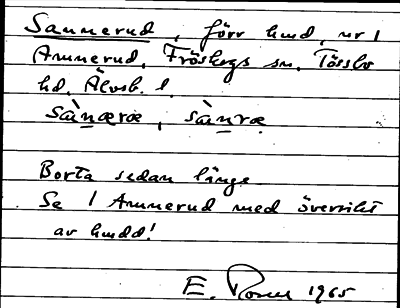 Sannerud, förr hmd, nr 1
Ånnerud, Fröskogs sn, Tössbo
hd, Älvsb. l.
sànæræ, sànræ
Borta sedan länge
Se 1 Ånnerud med översikt
av hmdd!
E. 1965